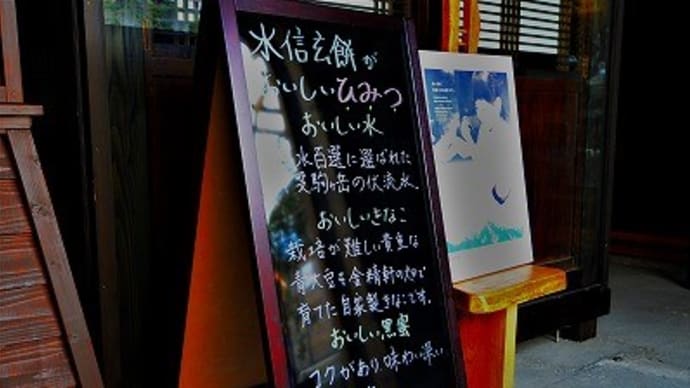 水信玄餅が
おいしいひみつ
おいしい水
水百選に選ばれた
甲斐駒ヶ岳の伏流水。
おいしいきなこ
栽培が難しい貴重な
青大豆を金精軒の畑で
育てた自家製きなこです。
おいしい黒蜜
コクがあり、味わい深い